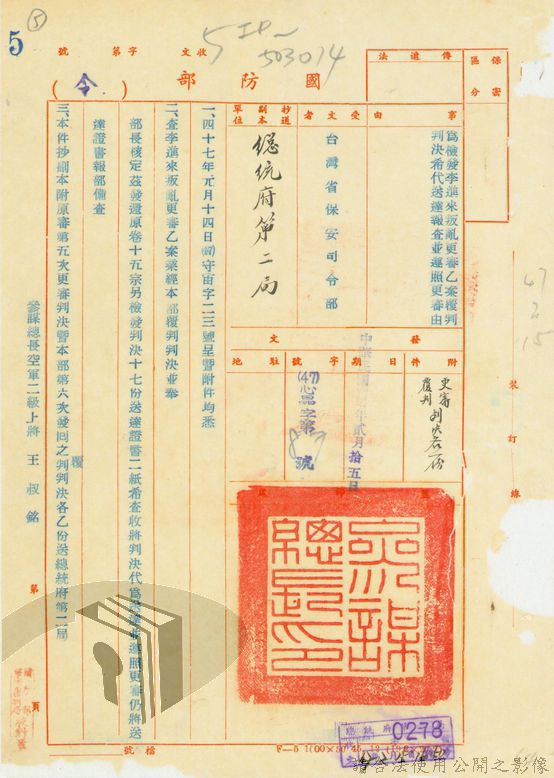 5
⑤
5
503074
收文 字第 號
國防部（令）
保密區分
傳遞法
事由
為檢發李進來叛亂更審乙案覆判判決希代送達報查並遵照更審由
受文者
台灣省保安司令部
抄送副本單位
總統府第二局
發文
附件
更審覆判判決各一份
日期
中華民國 年貳月拾五日
字號
(47)
字第 號
駐地
一、四十七年元月十四日(四)守宙字二三號呈暨附件均悉
二、查李進來叛亂更審乙案業經本部覆判判決並奉
部長核定茲發還原卷十五宗另檢發判決十七份送達證書二紙希查收將判決代為送達並遵照更審仍將送
達證書報部備查
三、本件抄副本附原審第五次更審判決暨本部第六次發回之覆判判決各乙份送總統府第二局
參謀總長空軍二級上將 王叔銘
參謀總長印
47
2
15
裝訂線
第 頁
檔號
總統府
0278
請合法使用公開之影像